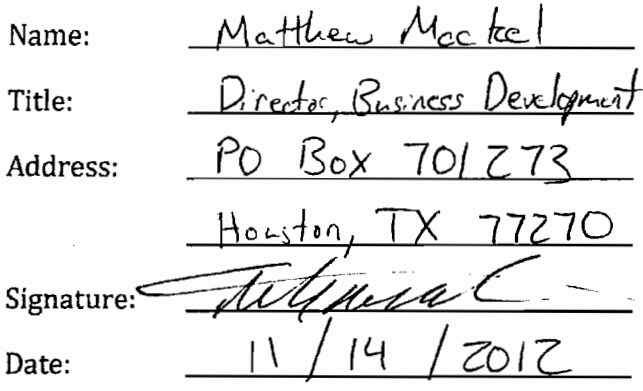 Name: Matthew
Title: Director, Business Development
Address: PO Box 701273
Houston, TX 77270
Signature:
Date: 11/14/2012